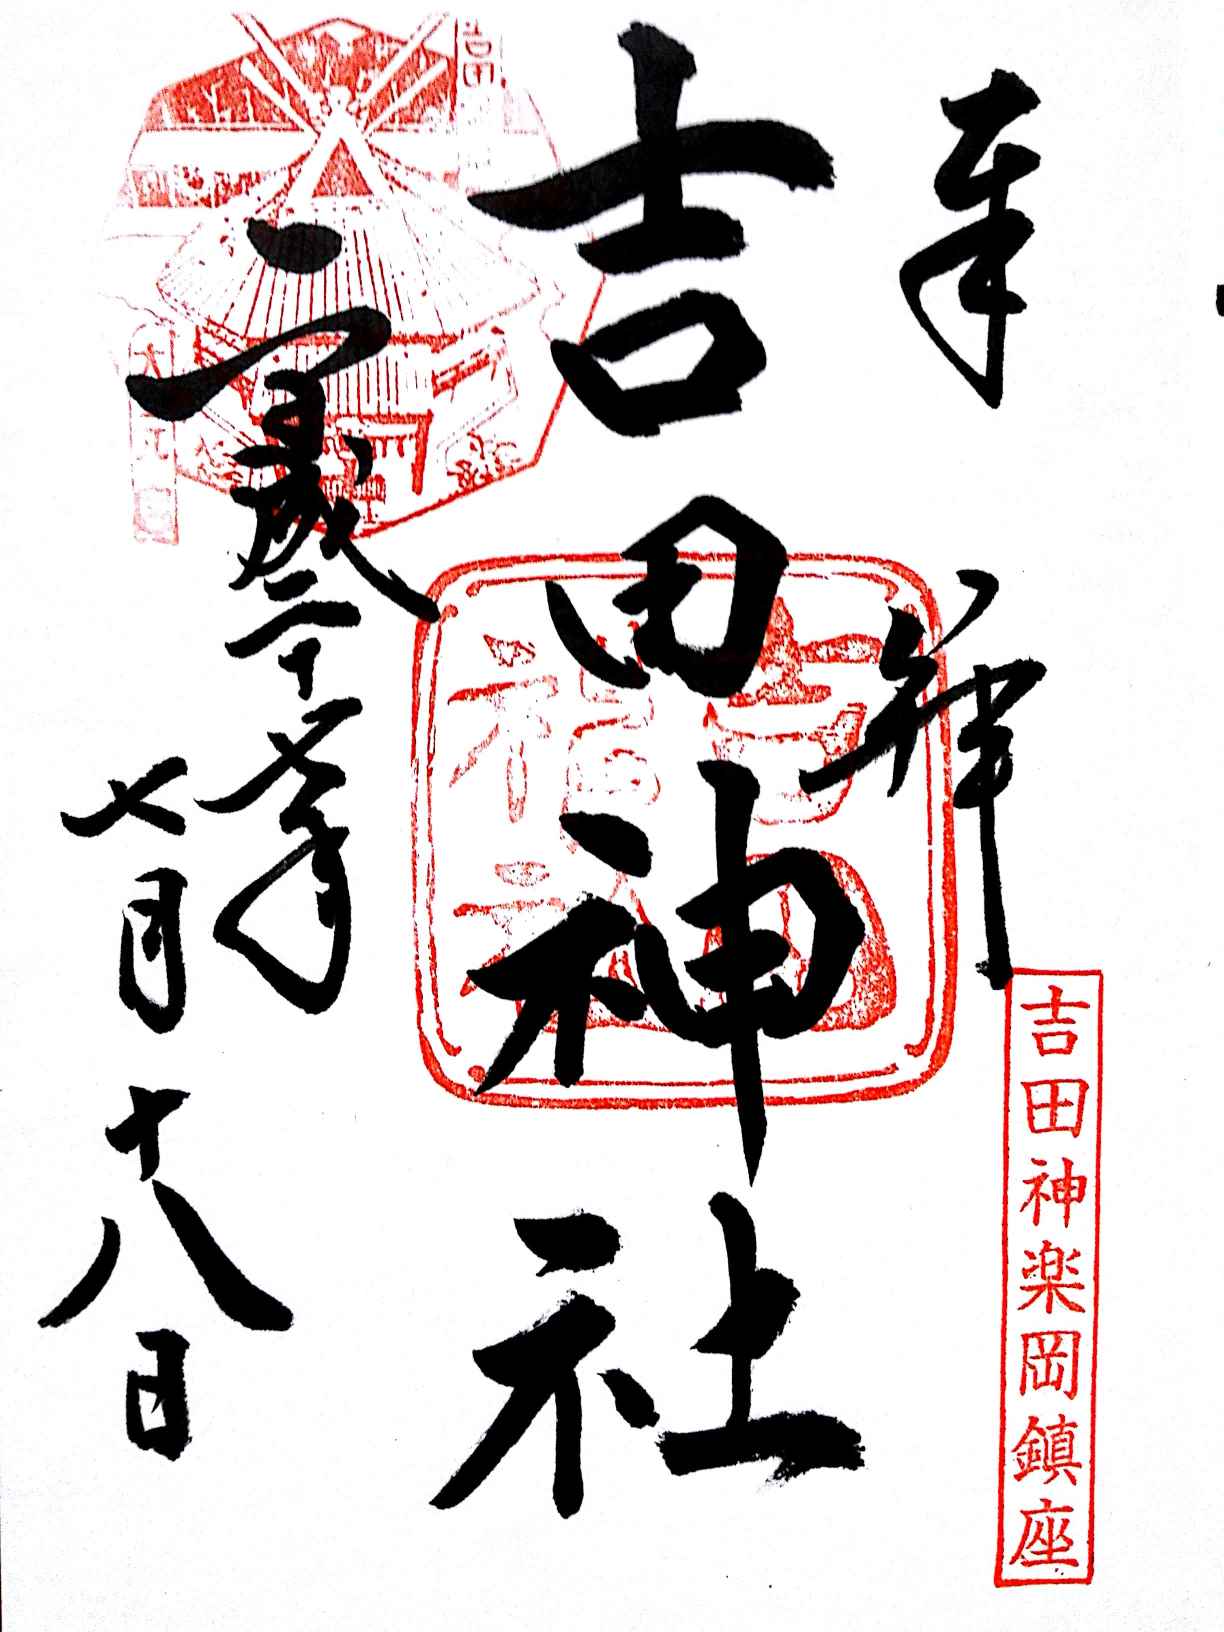 奉拝
吉田神楽岡鎮座
吉田神社
平成二十七年
七月十八日